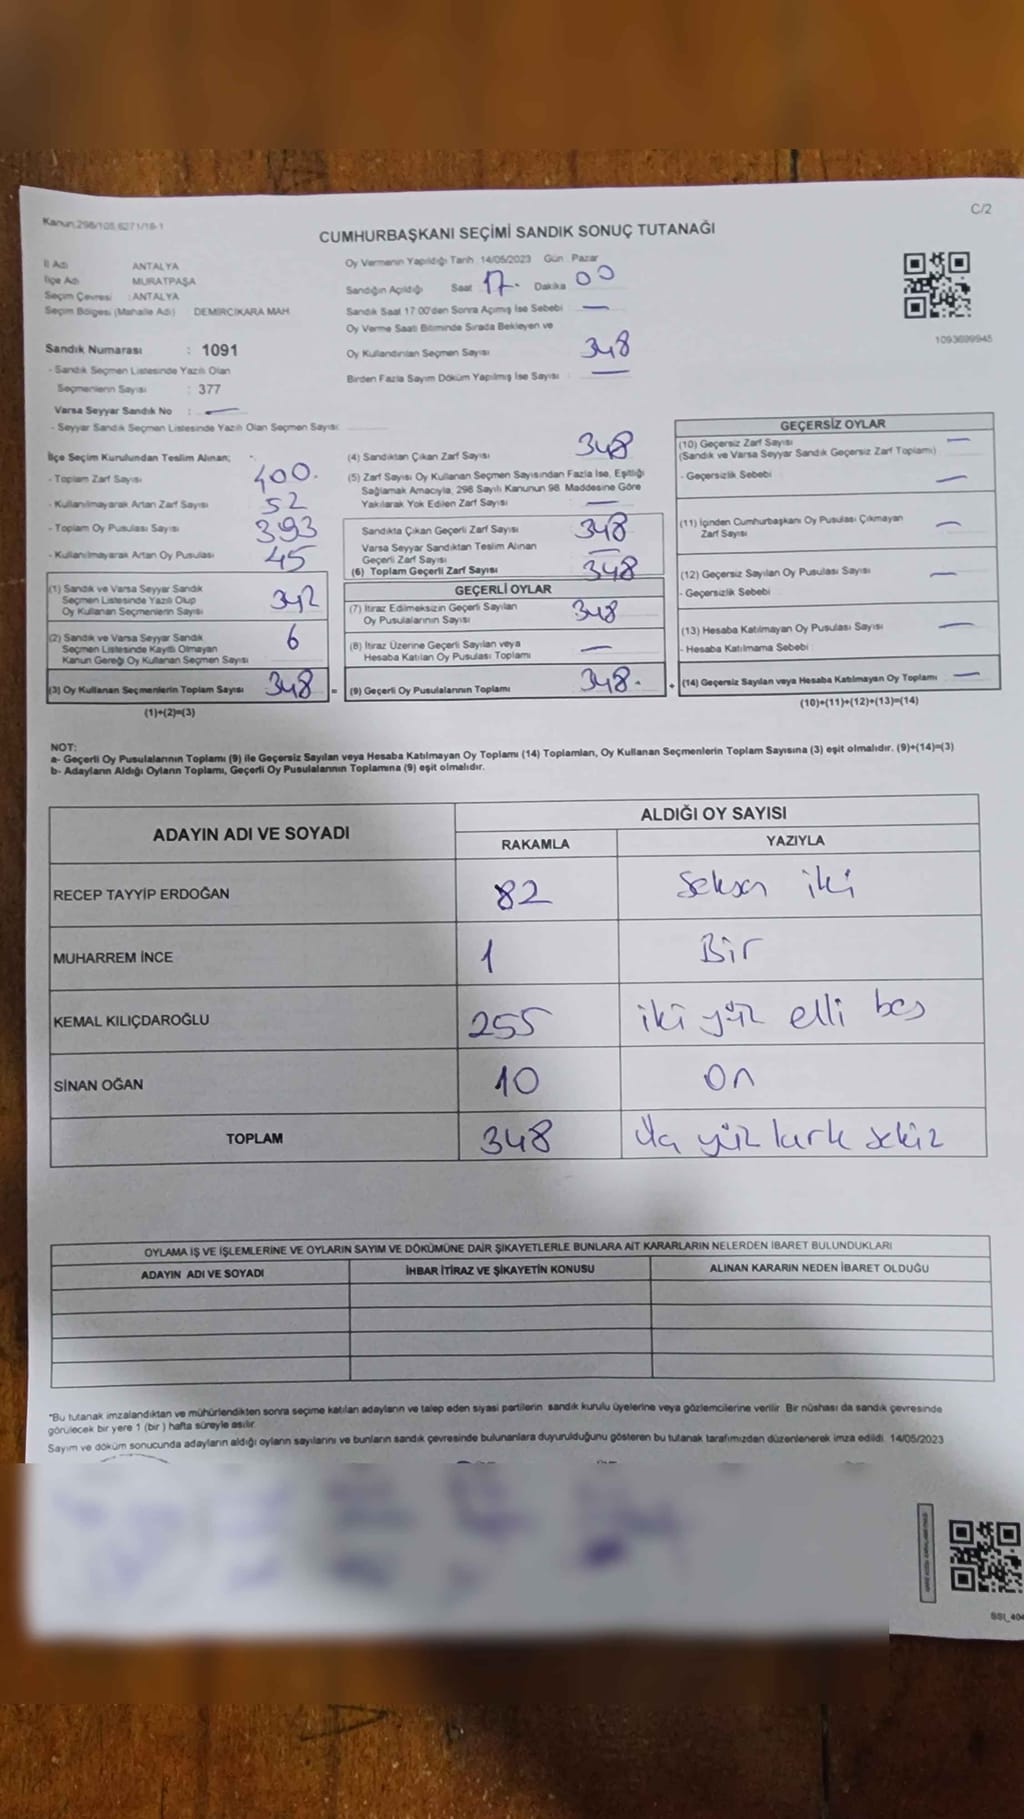 Kanun:298/105,6271/18-1
C/2
CUMHURBAŞKANI SEÇİMİ SANDIK SONUÇ TUTANAĞI
İl Adı : ANTALYA
İlçe Adı : MURATPAŞA
Seçim Çevresi : ANTALYA
Seçim Bölgesi (Mahalle Adı) : DEMİRCİKARA MAH.
Sandık Numarası : 1091
- Sandık Seçmen Listesinde Yazılı Olan
Seçmenlerin Sayısı : 377
Varsa Seyyar Sandık No : —
- Seyyar Sandık Seçmen Listesinde Yazılı Olan Seçmen Sayısı:
Oy Vermenin Yapıldığı Tarih 14/05/2023 Gün : Pazar
Sandığın Açıldığı Saat 17. Dakika 00
Sandık Saat 17:00'den Sonra Açımış İse Sebebi : —
Oy Verme Saati Bitiminde Sırada Bekleyen ve
Oy Kullandırılan Seçmen Sayısı : 348
Birden Fazla Sayım Döküm Yapılmış İse Sayısı : —
1093699945
İlçe Seçim Kurulundan Teslim Alınan;
- Toplam Zarf Sayısı : 400.
- Kullanılmayarak Artan Zarf Sayısı : 52
- Toplam Oy Pusulası Sayısı : 393
- Kullanılmayarak Artan Oy Pusulası : 45
(1) Sandık ve Varsa Seyyar Sandık
Seçmen Listesinde Yazılı Olup
Oy Kullanan Seçmenlerin Sayısı 342
(2) Sandık ve Varsa Seyyar Sandık
Seçmen Listesinde Kayıtlı Olmayan
Kanun Gereği Oy Kullanan Seçmen Sayısı 6
(3) Oy Kullanan Seçmenlerin Toplam Sayısı 348 =
(1)+(2)=(3)
(4) Sandıktan Çıkan Zarf Sayısı : 348
(5) Zarf Sayısı Oy Kullanan Seçmen Sayısından Fazla İse, Eşitliği
Sağlamak Amacıyla, 298 Sayılı Kanunun 98. Maddesine Göre
Yakılarak Yok Edilen Zarf Sayısı : —
Sandıkta Çıkan Geçerli Zarf Sayısı : 348
Varsa Seyyar Sandıktan Teslim Alınan
Geçerli Zarf Sayısı : —
(6) Toplam Geçerli Zarf Sayısı : 348
GEÇERLİ OYLAR
(7) İtiraz Edilmeksizin Geçerli Sayılan
Oy Pusulalarının Sayısı : 348
(8) İtiraz Üzerine Geçerli Sayılan veya
Hesaba Katılan Oy Pusulası Toplamı : —
(9) Geçerli Oy Pusulalarının Toplamı : 348. +
GEÇERSİZ OYLAR
(10) Geçersiz Zarf Sayısı : —
(Sandık ve Varsa Seyyar Sandık Geçersiz Zarf Toplamı)
- Geçersizlik Sebebi : —
(11) İçinden Cumhurbaşkanı Oy Pusulası Çıkmayan
Zarf Sayısı : —
(12) Geçersiz Sayılan Oy Pusulası Sayısı : —
- Geçersizlik Sebebi
(13) Hesaba Katılmayan Oy Pusulası Sayısı : —
- Hesaba Katılmama Sebebi :
(14) Geçersiz Sayılan veya Hesaba Katılmayan Oy Toplamı : —
(10)+(11)+(12)+(13)=(14)
NOT:
a- Geçerli Oy Pusulalarının Toplamı (9) ile Geçersiz Sayılan veya Hesaba Katılmayan Oy Toplamı (14) Toplamları, Oy Kullanan Seçmenlerin Toplam Sayısına (3) eşit olmalıdır. (9)+(14)=(3)
b- Adayların Aldığı Oyların Toplamı, Geçerli Oy Pusulalarının Toplamına (9) eşit olmalıdır.
ADAYIN ADI VE SOYADI
ALDIĞI OY SAYISI
RAKAMLA YAZIYLA
RECEP TAYYİP ERDOĞAN 82 Seksen iki
MUHARREM İNCE 1 Bir
KEMAL KILIÇDAROĞLU 255 iki yüz elli beş
SİNAN OĞAN 10 On
TOPLAM 348 Üç yüz kırk sekiz
OYLAMA İŞ VE İŞLEMLERİNE VE OYLARIN SAYIM VE DÖKÜMÜNE DAİR ŞİKAYETLERLE BUNLARA AİT KARARLARIN NELERDEN İBARET BULUNDUKLARI
ADAYIN ADI VE SOYADI İHBAR İTİRAZ VE ŞİKAYETİN KONUSU ALINAN KARARIN NEDEN İBARET OLDUĞU
*Bu tutanak imzalandıktan ve mühürlendikten sonra seçime katılan adayların ve talep eden siyasi partilerin sandık kurulu üyelerine veya gözlemcilerine verilir. Bir nüshası da sandık çevresinde
görülecek bir yere 1 (bir) hafta süreyle asılır.
Sayım ve döküm sonucunda adayların aldığı oyların sayılarını ve bunların sandık çevresinde bulunanlara duyurulduğunu gösteren bu tutanak tarafımızdan düzenlenerek imza edildi. 14/05/2023